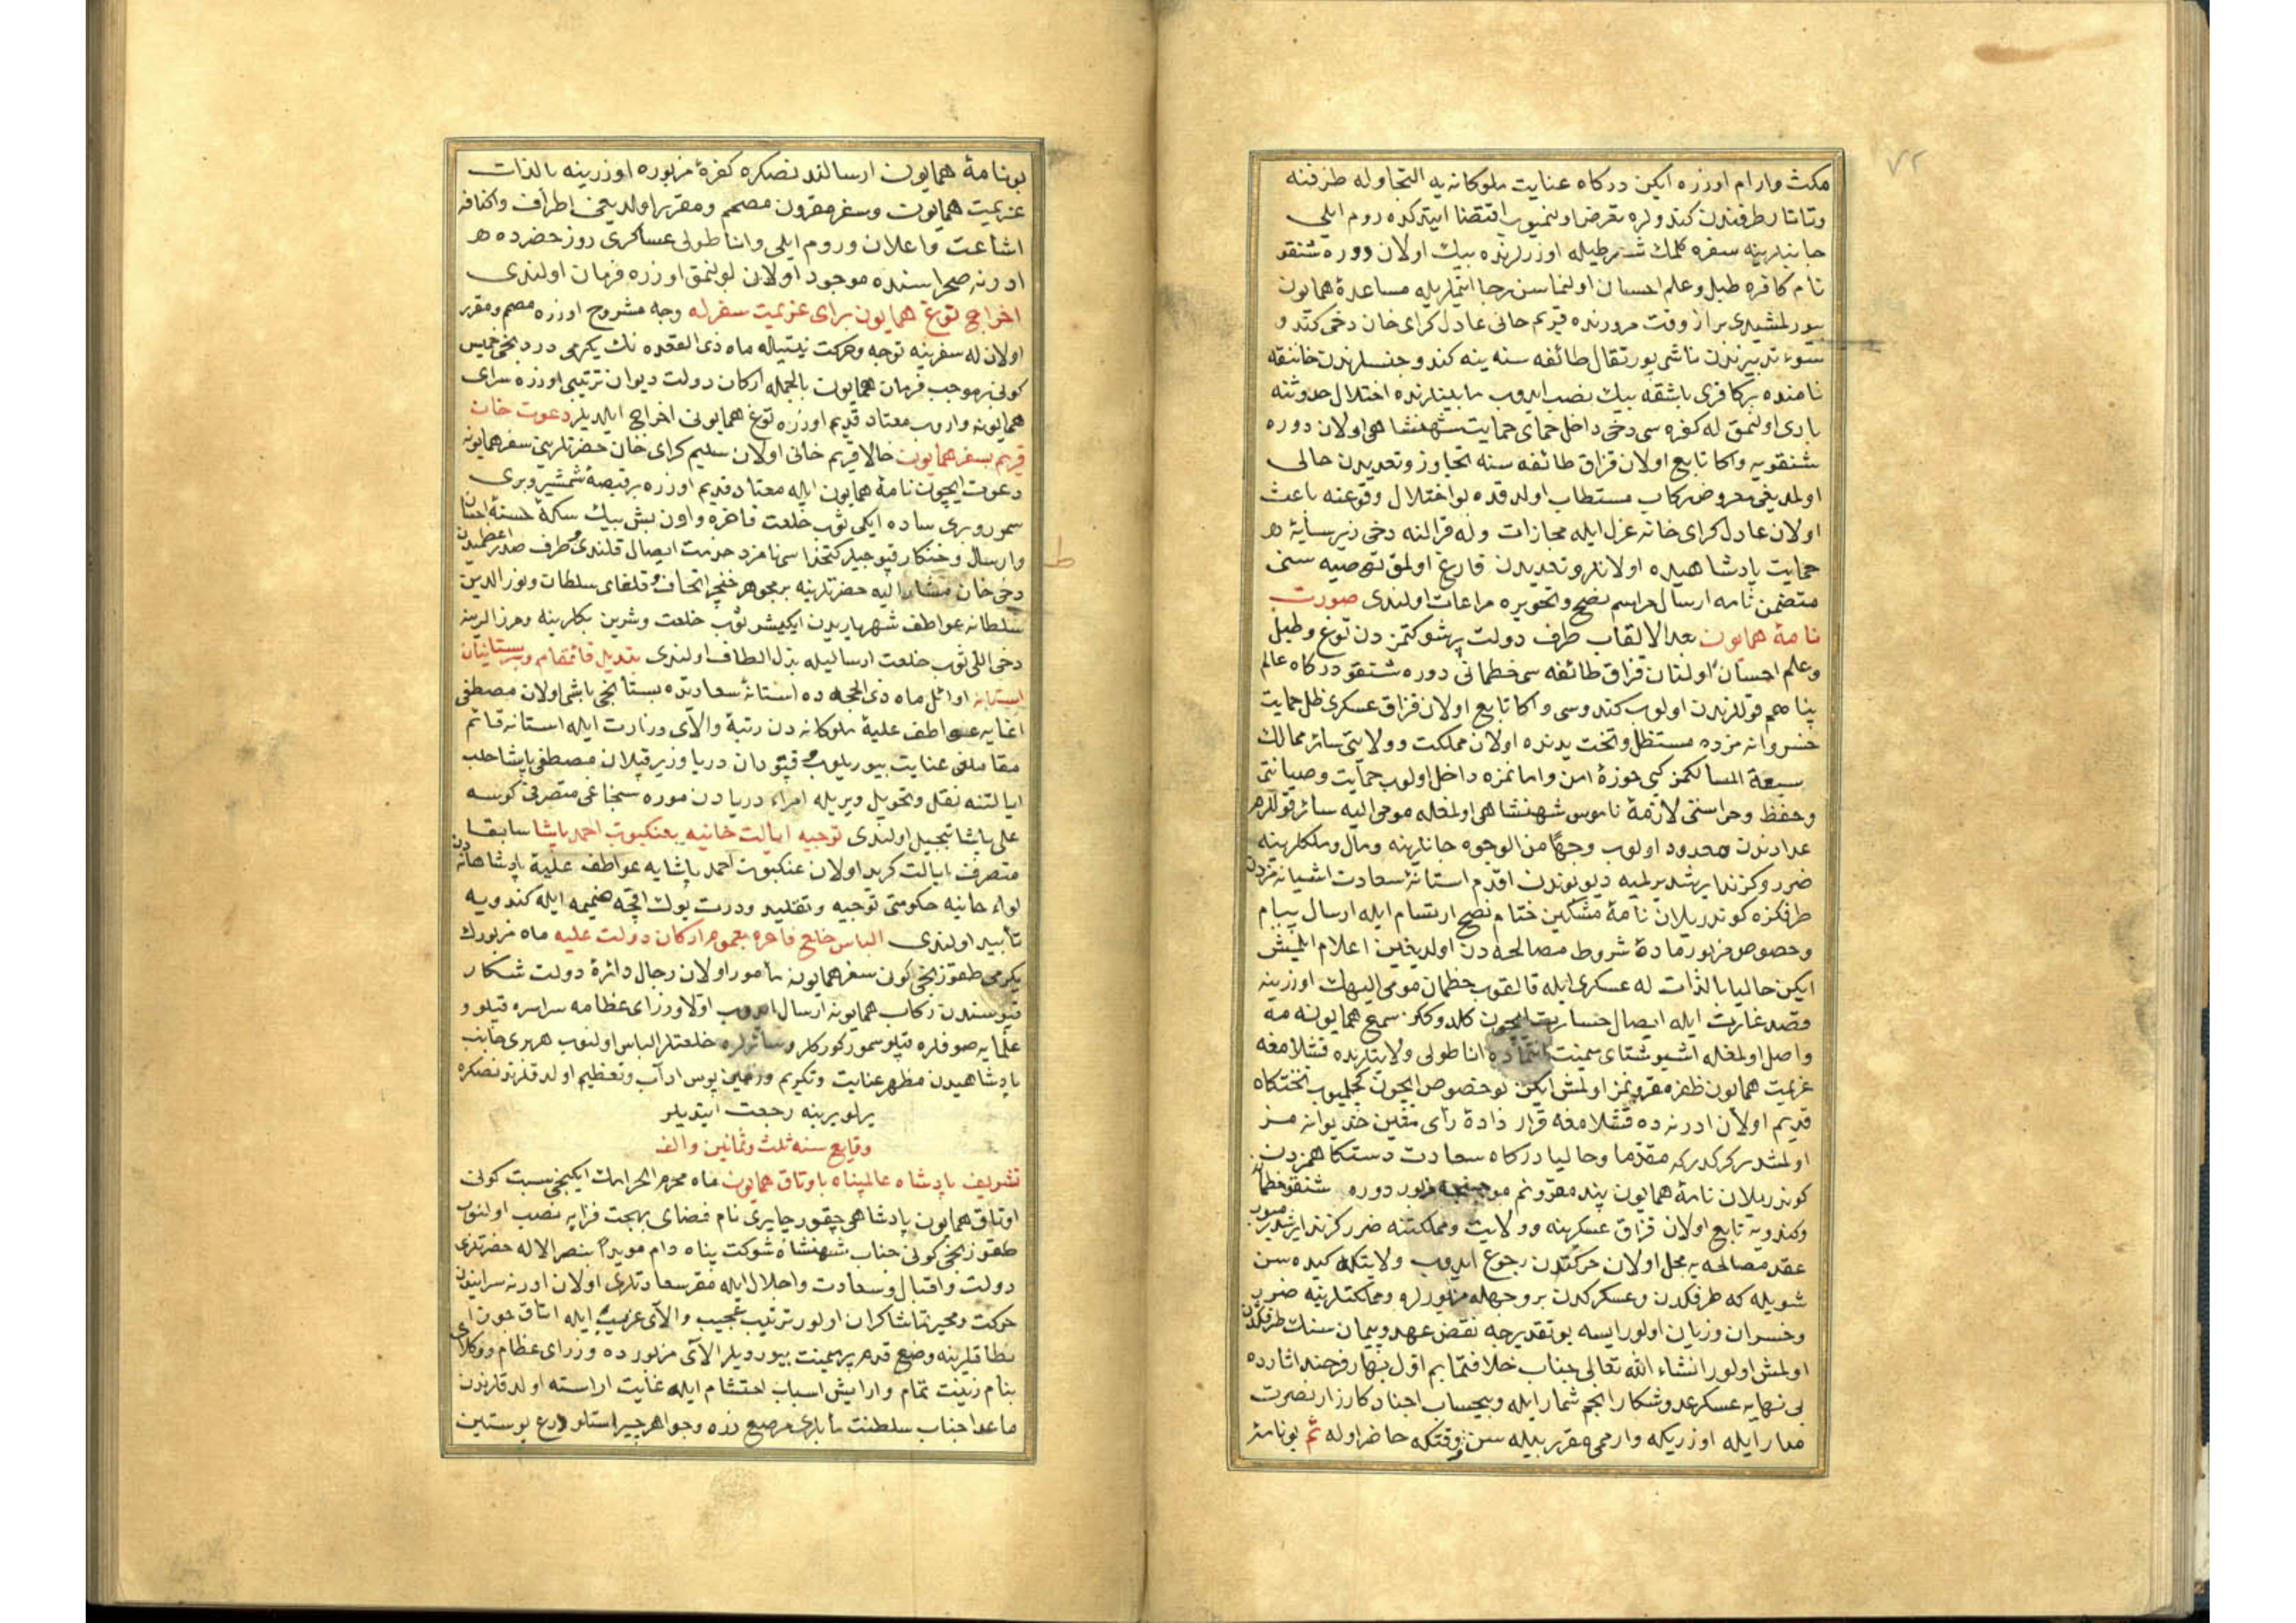 ٧٢
مكث وارام اوزره ايكن دركاه عنايت ملوكانه يه التجا وله طرفنه
وتاتار طرفندن كندولره تعرض اولنميوب اقتضا ايتدكده روم ايلى
جانبلرينه سفره كلمك شرطيله اوزرلرنده بيك اولان دوره شنقو
نام كافره طبل وعلم احسان اولنماسن رجا ايتملريله مساعدۀ همايون
بيورلمشيدى براز وقت مرورنده قريم خانى عادل كراى خان دخى كندو
سوء تدبيرندن ناشى پورتقال طائفه سنه ينه كندو جنسلرندن خاننقه
نامنده بر كافرى باشقه بيك نصب ايدوب مابينلرنده اختلال حدوثنه
بادى اولنمق له كفره سى دخى داخل حماى حمايت شهنشاهى اولان دوره
شنقويه واكا تابع اولان قزاق طائفه سنه تجاوز وتعديدن خالى
اولمديغى معروض ركاب مستطاب اولدقده بو اختلال وقوعنه باعث
اولان عادل كراى خانه عزل ايله مجازات وله قرالنه دخى زير سايۀ
حمايت پادشاهيده اولانلره تعديدن فارغ اولمق توصيه سنى
متضمن نامه ارسال مراسم نصح وتحويره مراعات اولندى صورت
نامۀ همايون بعد الالقاب طرف دولت پرشوكتمزدن توغ وطبل
وعلم احسان اولنان قزاق طائفه سى خطمانى دوره شنقو دركاه عالم
پناهم قوللرندن اولوب كندوسى واكا تابع اولان قزاق عسكرى ظل حمايت
خسروانه مزده مستظل وتحت يدنده اولان مملكت وولايتى سائر ممالك
وسيعة المسالكمز كبى حوزۀ امن وامانمزه داخل اولوب حمايت وصيانتى
وحفظ وحراستى لازمۀ ناموس شهنشاهى اولمغله مومى اليه سائر قوللرمز
عدادندن معدود اولوب وجها من الوجوه جانلرينه ومال وملكلرينه
ضرر وكزند ايرشديرلميه ديو بوندن اقدم استانۀ سعادت اشيانه مزدن
طرفكزه كوندريلان نامۀ مشكين ختام نصح ارتسام ايله ارسال پيام
وخصوص مزبور مادۀ شروط مصالحه دن اولديغين اعلام ايلمش
ايكن حاليا بالذات له عسكرى ايله قالقوب خطمان مومى اليهك اوزرينه
قصد غارت ايله ايصال خسارت ايچون كلدوككز سمع همايونمه
واصل اولمغله اشبو شتاى ميمنت انتماده اناطولى ولايتلرنده قشلامغه
عزيمت همايون ظفر مقرونمز اولمش ايكن بو خصوص ايچون كچلميوب تختكاه
قديم اولان ادرنه ده قشلامغه قرار دادۀ رأى متين خديوانه مز
اولمشدر كركدر كه مقدما وحاليا دركاه سعادت دستكاهمزدن
كوندريلان نامۀ همايون پند مقرونم موجبنجه مزبور دوره شنقو خطمانه
وكندويه تابع اولان قزاق عسكرينه وولايت ومملكتنه ضرر كزند ايرشديرميوب
عقد مصالحه يه مخل اولان حركتدن رجوع ايدوب ولايتكه كيده سن
شويله كه طرفكدن وعسكركدن بر وجهله مزبورلره ومملكتلرينه ضرر
وخسران وزيان اولور ايسه بو تقديرجه نقض عهد وپيمان سنك طرفكدن
اولمش اولور انشاء الله تعالى جناب خلافتمابم اول بهار فرخنده اثارده
بى نهايه عسكر عدو شكار انجم شمار ايله وبيحساب اجناد كارزار نصرت
مدار ايله اوزريكه وارمى مقرر بيله سن وقتكه حاضر اوله تم بو نامۀ
بو نامۀ همايون ارسالندنصكره كفرۀ مزبوره اوزرينه بالذات
عزيمت همايون وسفر مقرون مصمم ومقرر اولديغى اطراف واكنافه
اشاعت واعلان وروم ايلى واناطولى عساكرى روز حضرده
ادرنه صحراسنده موجود اولان بولنمق اوزره فرمان اولندى
اخراج توغ همايون براى عزيمت سفر له وجه مشروح اوزره مصمم ومقرر
اولان له سفرينه توجه وحركت نيتيله ماه ذى القعده نك يكرمى دردنجى خميس
كونى بر موجب فرمان همايون بالجمله اركان دولت ديوان ترتيبى اوزره سراى
همايونه واروب معتاد قديم اوزره توغ همايونى اخراج ايلديلر دعوت خان
قريم بسفر همايون حالا قريم خانى اولان سليم كراى خان حضرتلرينى سفر همايونه
دعوت ايچون نامۀ همايون ايله معتاد قديم اوزره بر قبضه شمشير وبرى
سمور وبرى ساده ايكى ثوب خلعت فاخره واون بش بيك سكۀ حسنه احسان
وارسال وخنكار قپوجيلر كتخداسى نامزد خدمت ايصال قلندى وطرف صدر اعظميدن
دخى خان مشار اليه حضرتلرينه بر مجوهر خنجر اتحاف وقلغاى سلطان ونور الدين
سلطانه عواطف شهرياريدن ايكيشر ثوب خلعت وشرين بكلرينه ومرزالرينه
دخى اللى ثوب خلعت ارساليله بذل الطاف اولندى تبديل قائمقام وبستانيان
استانه اوائل ماه ذى الحجه ده استانۀ سعادتده بستانجى باشى اولان مصطفى
اغايه عواطف عليۀ ملوكانه دن رتبۀ والاى وزارت ايله استانه قائم
مقاملغى عنايت بيوريلوب قپودان دريا وزير قپلان مصطفى پاشا حلب
ايالتنه نقل وتحويل ويريله امراء دريادن موره سنجاغى متصرفى كوسه
على پاشا تبجيل اولندى توجيه ايالت خانيه بعنكبوت احمد پاشا سابقا
متصرف ايالت كريد اولان عنكبوت احمد پاشايه عواطف عليۀ پادشاهانه دن
لواء خانيه حكومتى توجيه وتقليد ودرت يوك اقچه ضميمه ايله كندويه
تأبيد اولندى الباس خلع فاخره بعموم اركان دولت عليه ماه مزبورك
يكرمى طقوزنجى كون سفر همايونه مأمور اولان رجال دائرۀ دولت شكار
قپوسندن ركاب همايونه ارسال ايدوب اولا وزراى عظامه سراسره قپلو و
علمايه صوفلره قپلو سمور كوركلر وسائرلره خلعتلر الباس اولنوب هر برى جانب
پادشاهيدن مظهر عنايت وتكريم وزمين بوس اداب وتعظيم اولدقلرندنصكره
يرلو يرينه رجعت ايتديلر
وقايع سنه ثلث وثمانين والف
تشريف پادشاه عالمپناه باوتاق همايون ماه محرم الحرامك ايكنجى سبت كونى
اوتاق همايون پادشاهى چقور چايرى نام فضاى بهجت فزايه نصب اولنوب
طقوزنجى كونى جناب شهنشاه شوكت پناه دام مويدا بنصر الاله حضرتلرى
دولت واقبال وسعادت واجلال ايله مقر سعادتلرى اولان ادرنه سرايندن
حركت ومحير تماشاكران اولور ترتيب عجيب والاى غريب ايله اتاق جون
نطاقلرينه وضع قدم پر ميمنت بيورديلر الاى مزبورده وزراى عظام ووكلاى
بنام زينت تمام وارايش اسباب احتشام ايله غايت اراسته اولدقلرندن
ماعدا جناب سلطنت مأبلرى مرصع زره وجواهر چپراستلو درع پوستين